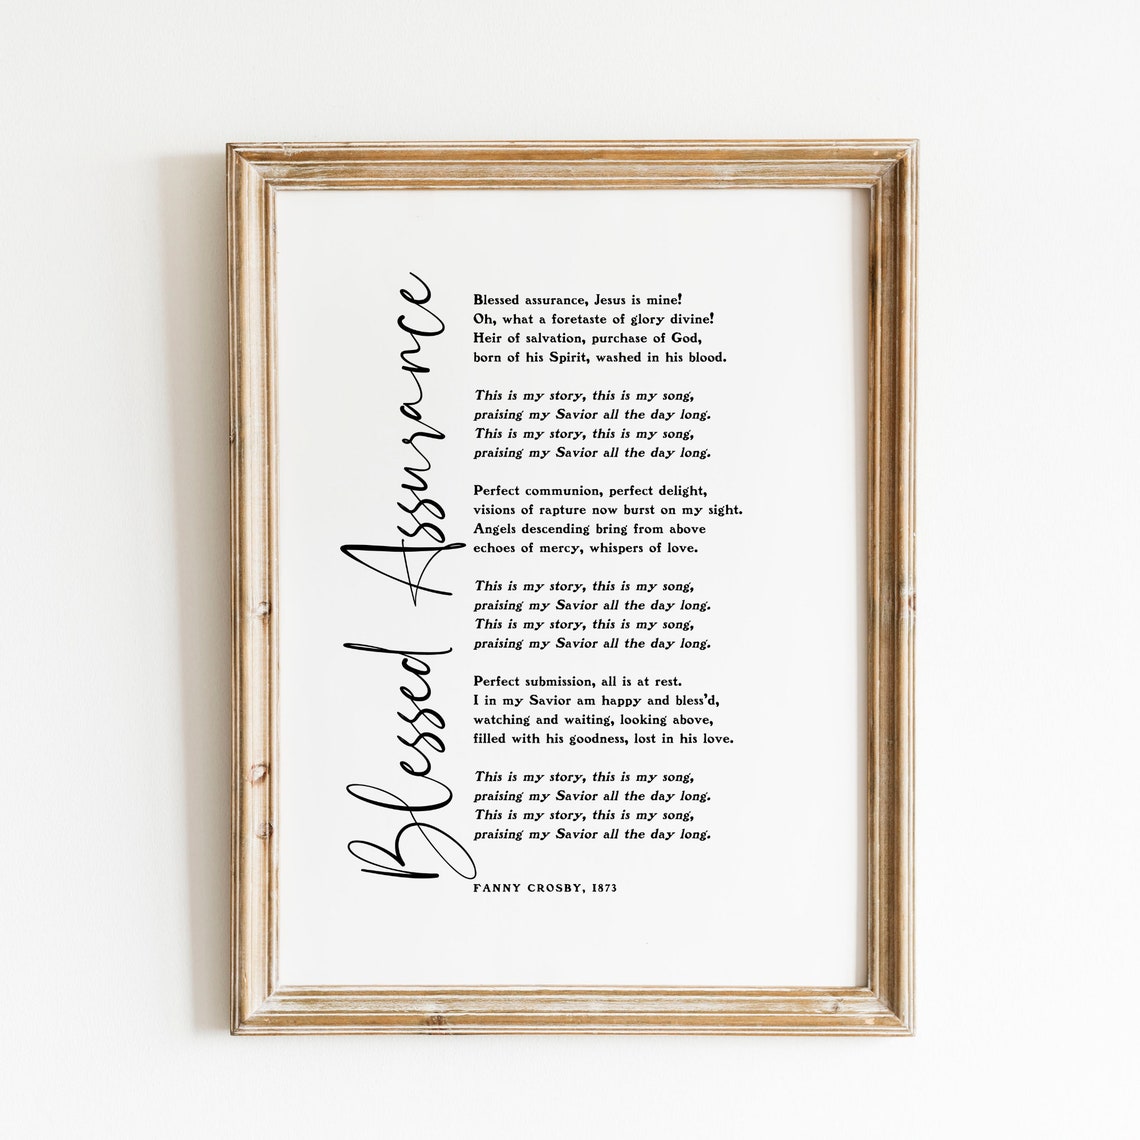 Blessed Assurance
Blessed assurance, Jesus is mine!
Oh, what a foretaste of glory divine!
Heir of salvation, purchase of God,
born of his Spirit, washed in his blood.
This is my story, this is my song,
praising my Savior all the day long.
This is my story, this is my song,
praising my Savior all the day long.
Perfect communion, perfect delight,
visions of rapture now burst on my sight.
Angels descending bring from above
echoes of mercy, whispers of love.
This is my story, this is my song,
praising my Savior all the day long.
This is my story, this is my song,
praising my Savior all the day long.
Perfect submission, all is at rest.
I in my Savior am happy and bless'd,
watching and waiting, looking above,
filled with his goodness, lost in his love.
This is my story, this is my song,
praising my Savior all the day long.
This is my story, this is my song,
praising my Savior all the day long.
FANNY CROSBY, 1873